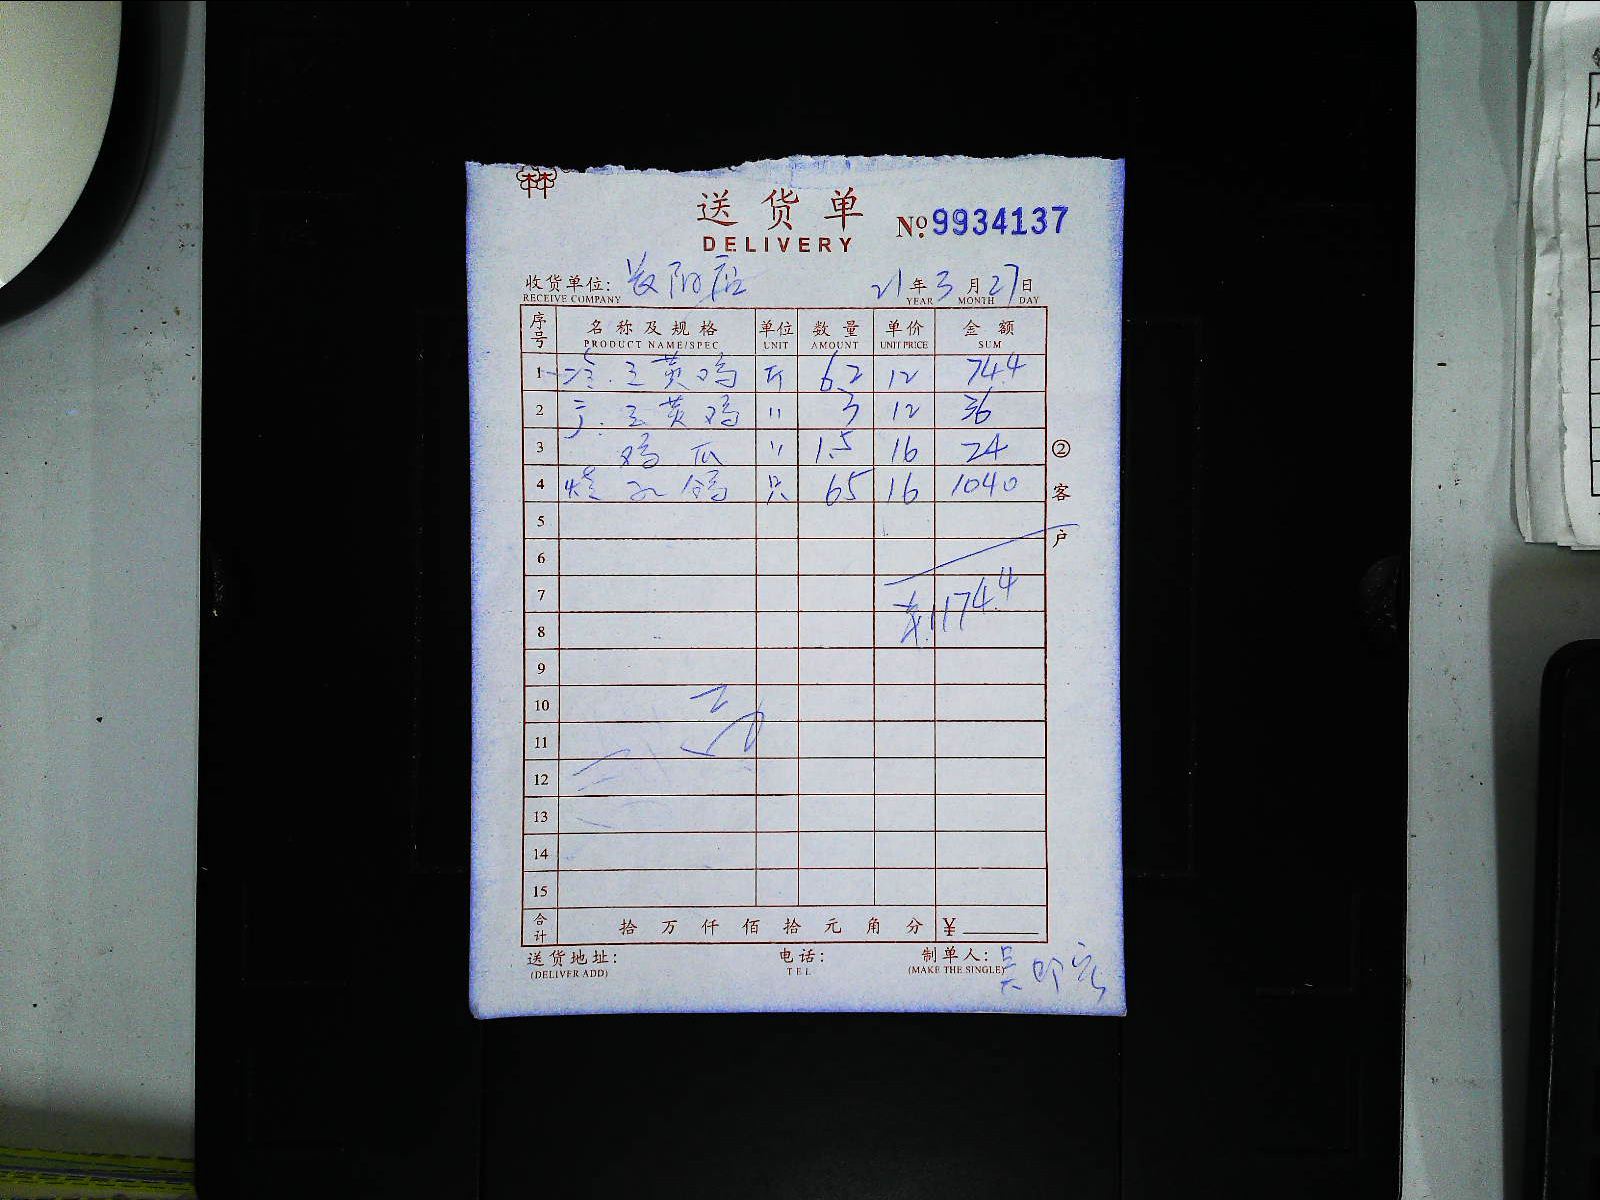 送货单
DELIVERY
№ 9934137
收货单位: 长阳店 21年3月27日
RECEIVE COMPANY YEAR MONTH DAY
序号 名称及规格 单位 数量 单价 金额
PRODUCT NAME/SPEC UNIT AMOUNT UNIT PRICE SUM
1 冷.三黄鸡 斤 6.2 12 74.4
2 三黄鸡 〃 3 12 36
3 鸡爪 〃 1.5 16 24
4 烧乳鸽 只 65 16 1040
5
6
7
1174.4
8
9
10
11
12
13
14
15
合计 拾万仟佰拾元角分 ¥
②客户
送货地址: 电话: 制单人: 吴
(DELIVER ADD) TEL (MAKE THE SINGLE)